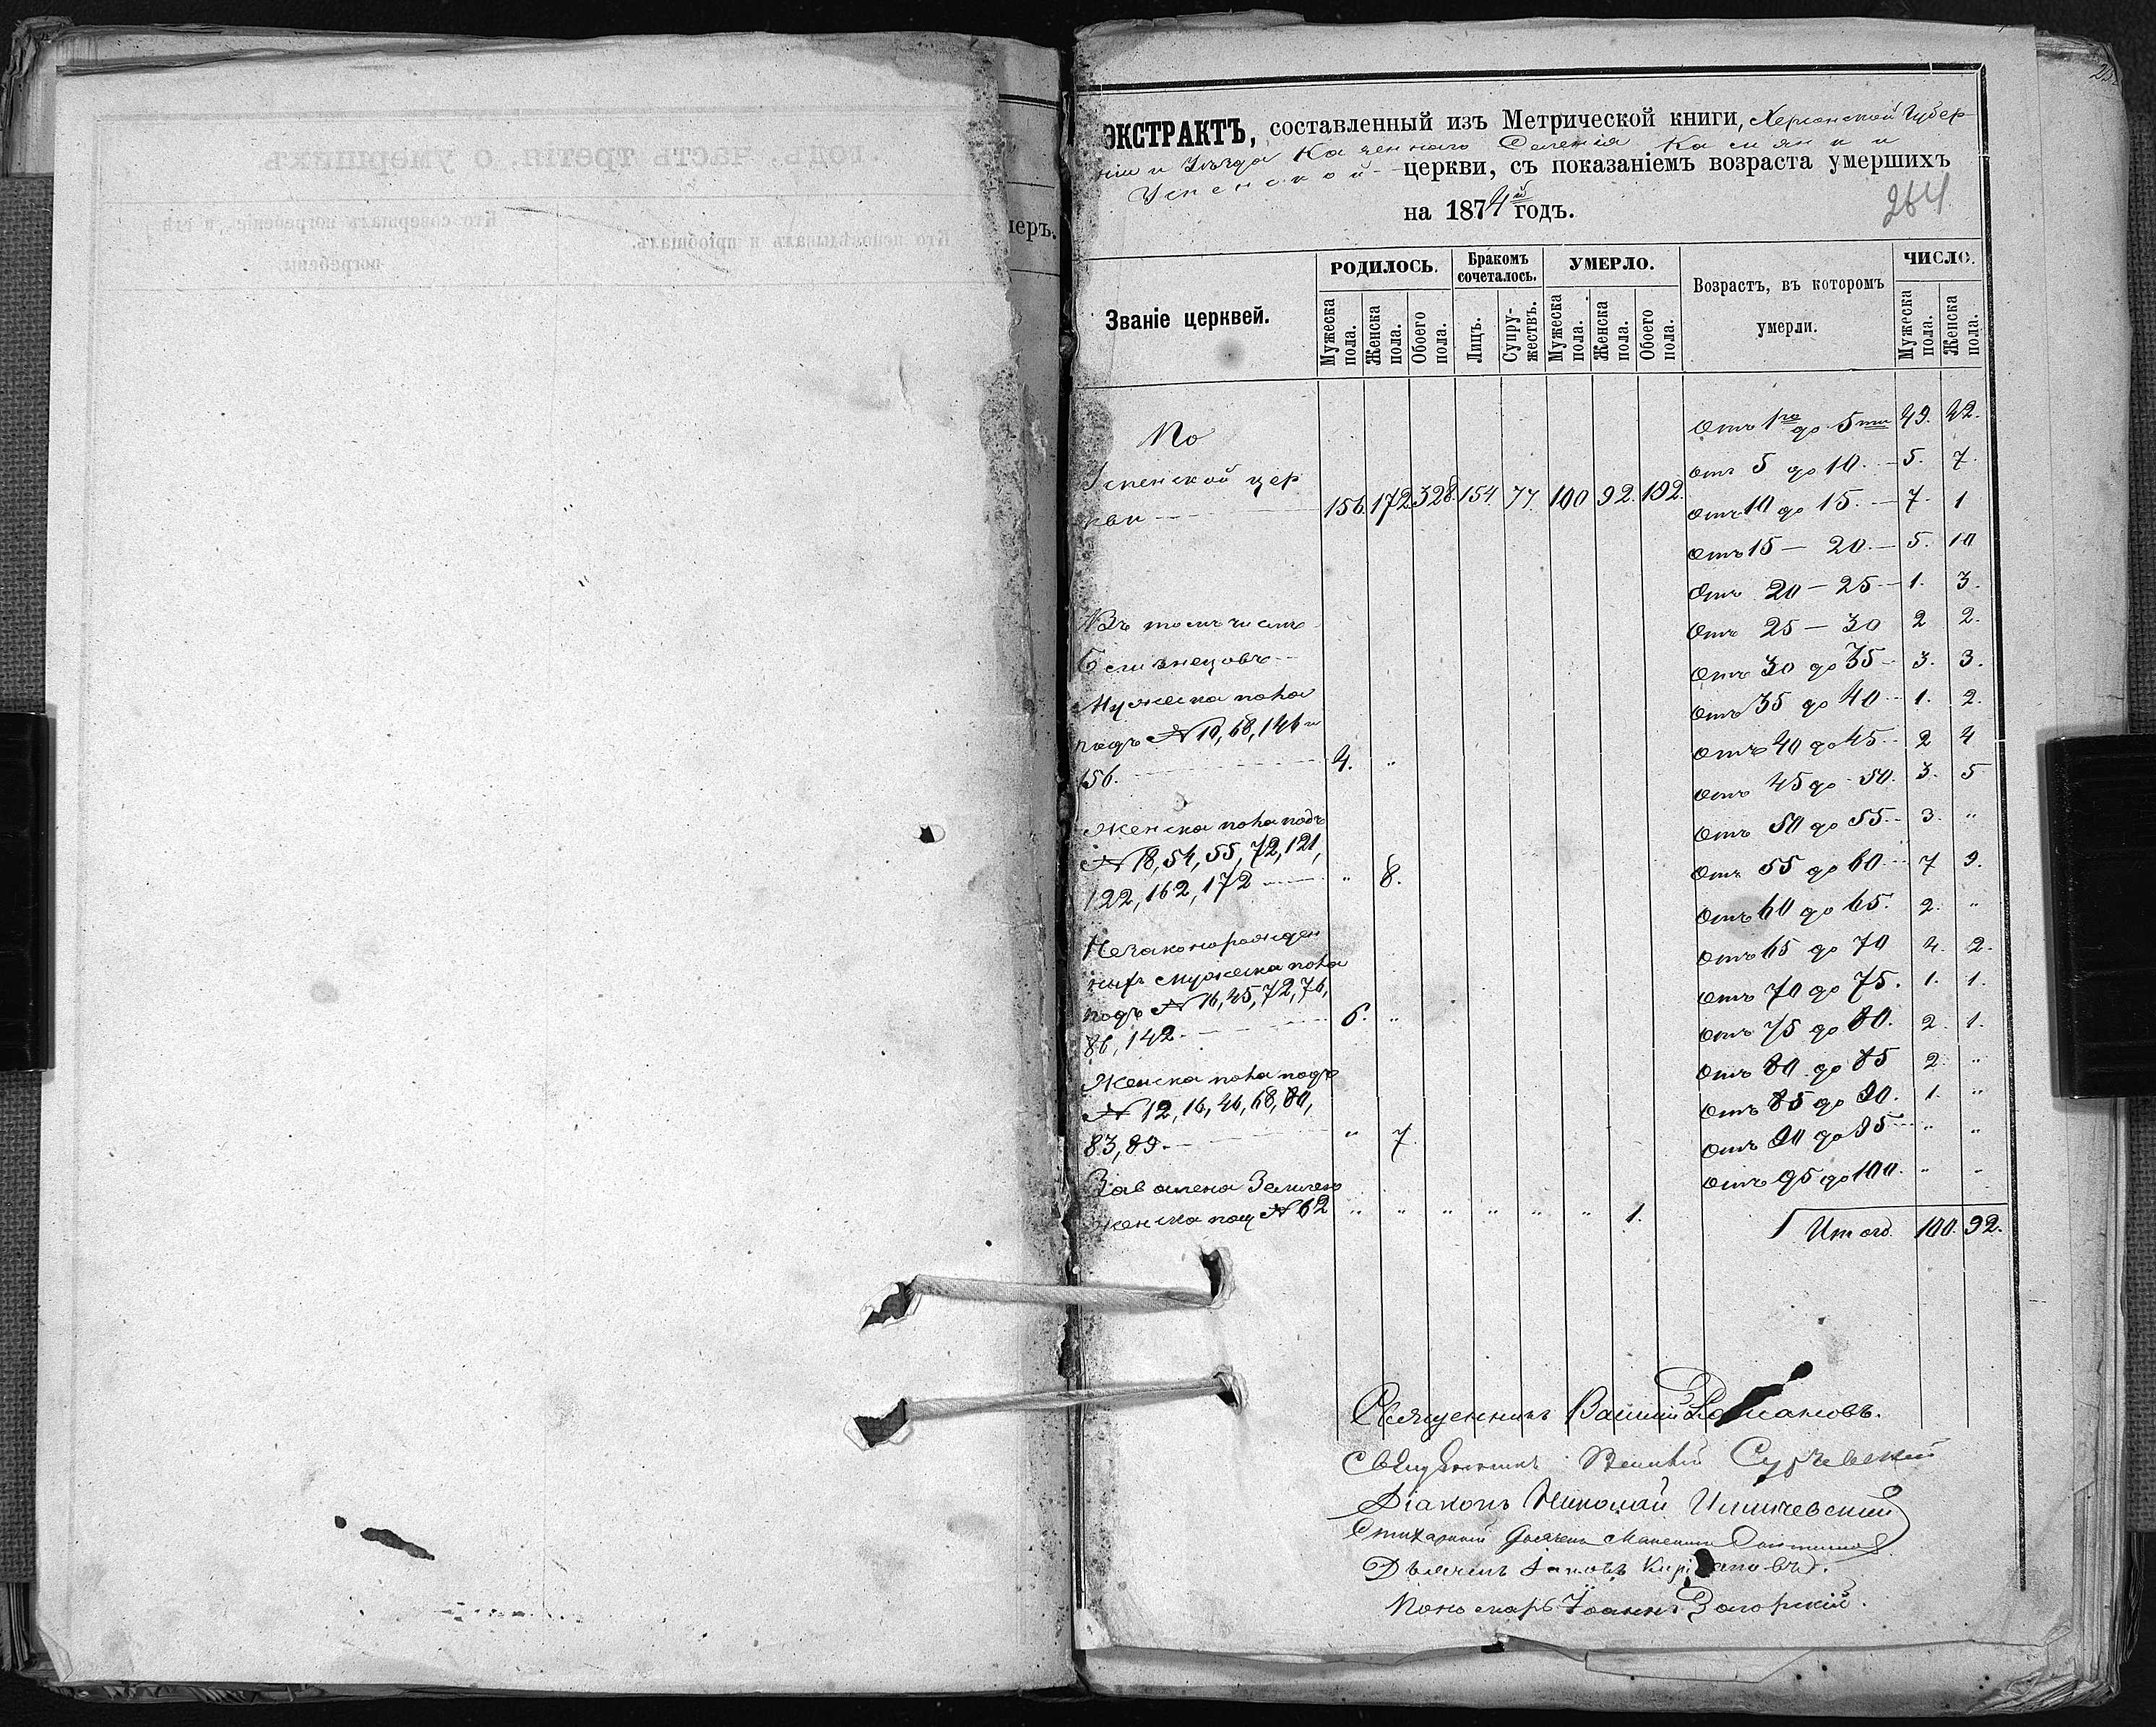 ЭКСТРАКТЪ, составленный изъ Метрической книги, Херсонской Губер
ніи и Уѣзда Казеннаго Селенія Касянки
Успенской церкви, съ показаніемъ возраста умершихъ
на 1874й годъ.
264
Званіе церквей.
РОДИЛОСЬ.
Бракомъ сочеталось.
УМЕРЛО.
Возрастъ, въ котором умерли.
ЧИСЛО.
Мужеска пола.
Женска пола.
Обоего пола.
Лицъ.
Супружествъ.
Мужеска пола.
Женска пола.
Обоего пола.
Мужеска пола.
Женска пола.
По
Успенской цер
кви 156. 172. 328. 154. 77. 100 92. 192.
Въ томъ числѣ
Близнецовъ
Мужеска пола
подъ № 10, 68, 146 и
156. 4. "
Женска пола подъ
№ 18, 54, 55, 72, 121,
122, 162, 172 " 8.
Незаконорожден
ныхъ мужеска пола
подъ № 16, 45, 72, 76,
86, 142. 6. "
Женска пола подъ
№ 12, 16, 46, 68, 80,
83, 89. " 7.
Завалена Землею
женска под № 62 " " " " " " 1.
Отъ 1го до 5ти 49. 42.
отъ 5 до 10. 5. 7.
отъ 10 до 15. 7. 1
Отъ 15 — 20. 5. 10
Отъ 20 — 25 1. 3.
Отъ 25 — 30 2 2.
Отъ 30 до 35 3. 3.
Отъ 35 до 40 1. 2.
Отъ 40 до 45 2 4
Отъ 45 до 50. 3. 5
Отъ 50 до 55 3. "
Отъ 55 до 60 7 9.
Отъ 60 до 65. 2. "
Отъ 65 до 70 4. 2.
Отъ 70 до 75. 1. 1.
Отъ 75 до 80. 2. 1.
Отъ 80 до 85 2. "
Отъ 85 до 90. 1. "
Отъ 90 до 95 " "
Отъ 95 до 100. " "
Итого 100. 92.
Священникъ
Священникъ
Діаконъ Николай
Стихарный Дьячекъ
Дьячекъ Іаковъ
Пономарь Іоаннъ Загорскій.